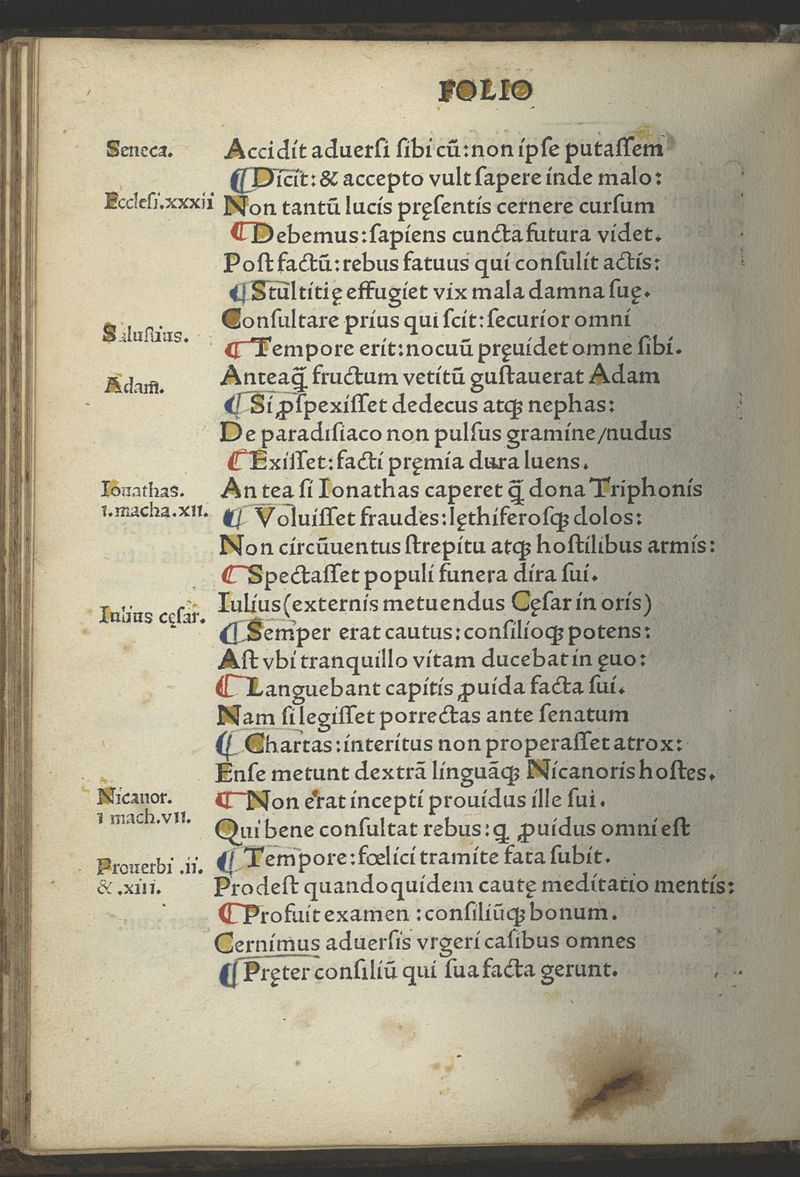 FOLIO
Seneca.
Accidit aduerſi ſibi cũ: non ipſe putaſſem
⸿ Dicit: & accepto vult ſapere inde malo:
Eccleſi.xxxii
Non tantũ lucis pręſentis cernere curſum
⸿ Debemus: ſapiens cuncta futura videt.
Poſt factũ: rebus fatuus qui conſulit actis:
⸿ Stultitię effugiet vix mala damna ſuę.
Saluſtius.
Conſultare prius qui ſcit: ſecurior omni
⸿ Tempore erit: nocuũ pręuidet omne ſibi.
Adam.
Anteaq̃ fructum vetitũ guſtauerat Adam
⸿ Si ꝓſpexiſſet dedecus atqꝫ nephas:
De paradiſiaco non pulſus gramine/nudus
⸿ Exiſſet: facti pręmia dura luens.
Ionathas.
1.macha.xII.
An tea ſi Ionathas caperet q̃ dona Triphonis
⸿ Voluiſſet fraudes: lęthiferoſqꝫ dolos:
Non circũuentus ſtrepitu atqꝫ hoſtilibus armis:
⸿ Spectaſſet populi funera dira ſui.
Iulius cęſar.
Iulius (externis metuendus Cęſar in oris)
⸿ Semper erat cautus: conſilioqꝫ potens:
Aſt vbi tranquillo vitam ducebat in ęuo:
⸿ Languebant capitis ꝓuida facta ſui.
Nam ſi legiſſet porrectas ante ſenatum
⸿ Chartas: interitus non properaſſet atrox:
Enſe metunt dextrã linguãqꝫ Nicanoris hoſtes.
Nicanor.
1 mach.vII.
⸿ Non erat incepti prouidus ille ſui.
Qui bene conſultat rebus: q̨ ꝓuidus omni eſt
⸿ Tempore: fœlici tramite fata ſubit.
Prouerbi .ii.
& .xiii.
Prodeſt quandoquidem cautę meditatio mentis:
⸿ Profuit examen : conſiliũqꝫ bonum.
Cernimus aduerſis vrgeri caſibus omnes
⸿ Pręter conſiliũ qui ſua facta gerunt.